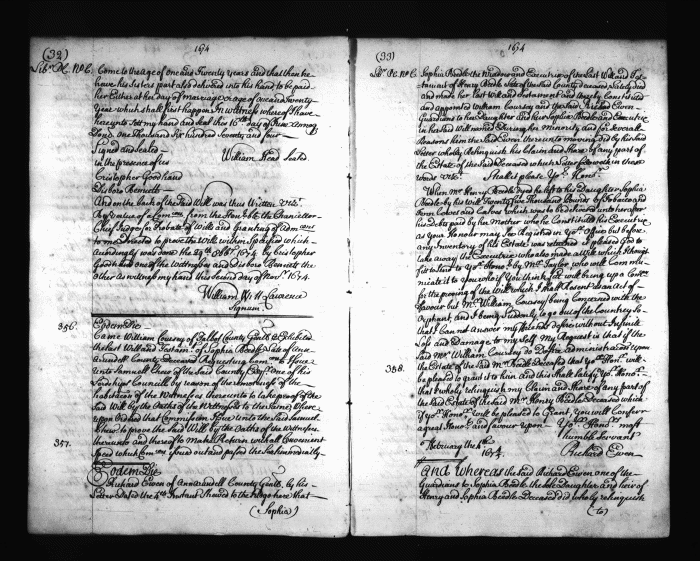 (32)
1674
Come to the age of one and Twenty years and that then he
have his Sisters part also delivered into his hand to be paid
her Either at her day of marriage or age of one and Twenty
Year which shall first happen In witness whereof I have
hereunto Sett my hand and Seal this 16th day of Anno
Dond. one Thousand Six hundred Seventy and four
Signed and Sealed
in the presence of us William Head Sealed
Cristopher Goodhand
Disboro Bennett
And on the back of the said Will was thus Written Viz.
By Value of a Comon from the Honble the Chancellor
Chief Judge for Probate of Wills and Granting of Admcons
to me Directed to prove the Will within Specified which
accordingly was done the 27th 1674 by Cristopher
Goodhand one of the Witnesses and Disboro Bennett the
other As witness my hand this Second day of Novr. 1674.
William W: H Laurence
Signum
356. Eodem Die
Came William Coursey of Talbot County Gentl. & Exhibited
the last Will and Testamt. of Sophia Beedle Late of Ann
Arundell County Deceased Requesting Comon to Issue
unto Samuell Chew of the said County Esqr. one of his
Lordships Councill by reason of the remoteness of the
habitation of the Witnesses thereunto to take proof of the
said Will by the Oaths of the Witnesses to the Same, Where
upon Ordred that Commission Issue unto the said Samuel
Chew to prove the said Will by the Oaths of the Witnesses
thereunto and thereof to Make Return with all Convenient
Speed which Comon issued out and passed the Same inodie
357. Eodem Die
Richard Ewen of Annarundell County Gentl. by his
Letter Dated the 4th Instant Shewed to the Judge here That
(Sophia)
(33)
1674
Sophia Beedle the Widdow and Executrix of the Last Will and Tes-
tament of Henry Beedle Late of the said County deceased lately died
and made her Last Will and testament and thereby Constituted
and appointed William Coursey and the said Richard Ewen
Guardians to her Daughter and heir Sophia Beedle and Executrix
in her said Will named During her Minority and for Severall
Reasons him the said Ewen thereunto moveing did by his said
Letter wholly Relinquish his Claim and Share of any part of
the Estate of the said Deceased which Letter followeth in these
words Vizt. Shall it please Yor. Honr.
When Mr. Henry Beedle dyed he left to his Daughter Sophia
Beedle by his Will Twenty five Thousand Pounds of Tobacco and
Tenn Cowes and Calves which was to be delivered unto her after
his Debts paid by her Mother who he Constituted his Executrix
as Your Honour may See Registred in Yor. Office but before
any Inventory of his Estate was returned it pleased God to
take away the Executrix who also made a Will which I thought
fitt to Send to Yor. Honor. by Mr. Taylor who will Commu-
nicate it to you who if you think fitt will bring up a Comon
for the proving of the Will which I shall Resent as an Act of
favour but Mr. William Coursey being Concerned with the
Orphant, and I being Suddenly to go out of the Countrey So
that I can not Answer my friends desire without Infinite
Loss and Damage to my Self My Request is that if the
said Mr. William Coursey do Desire Administration upon
the Estate of the said Mrs. Beedle Deceased that Yor. Honr. will
be pleased to grant it to him and this shall Satisfy Yor. Honor.
that I wholy relinquish my Claim and Share of any part of
the said Estate of the said Mr. Henry Beedle Deceased which
if Yor. Honor. will be pleased to Grant, You will Conferr
a great Honor. and favour upon Yor. Honor. most
humble Servant
February the 4th
1674. Richard Ewen
358. And Whereas the said Richard Ewen one of the
Guardians to Sophia Beedle the sole Daughter and heir of
Henry and Sophia Beedle Deceased did wholly relinquish
(to)